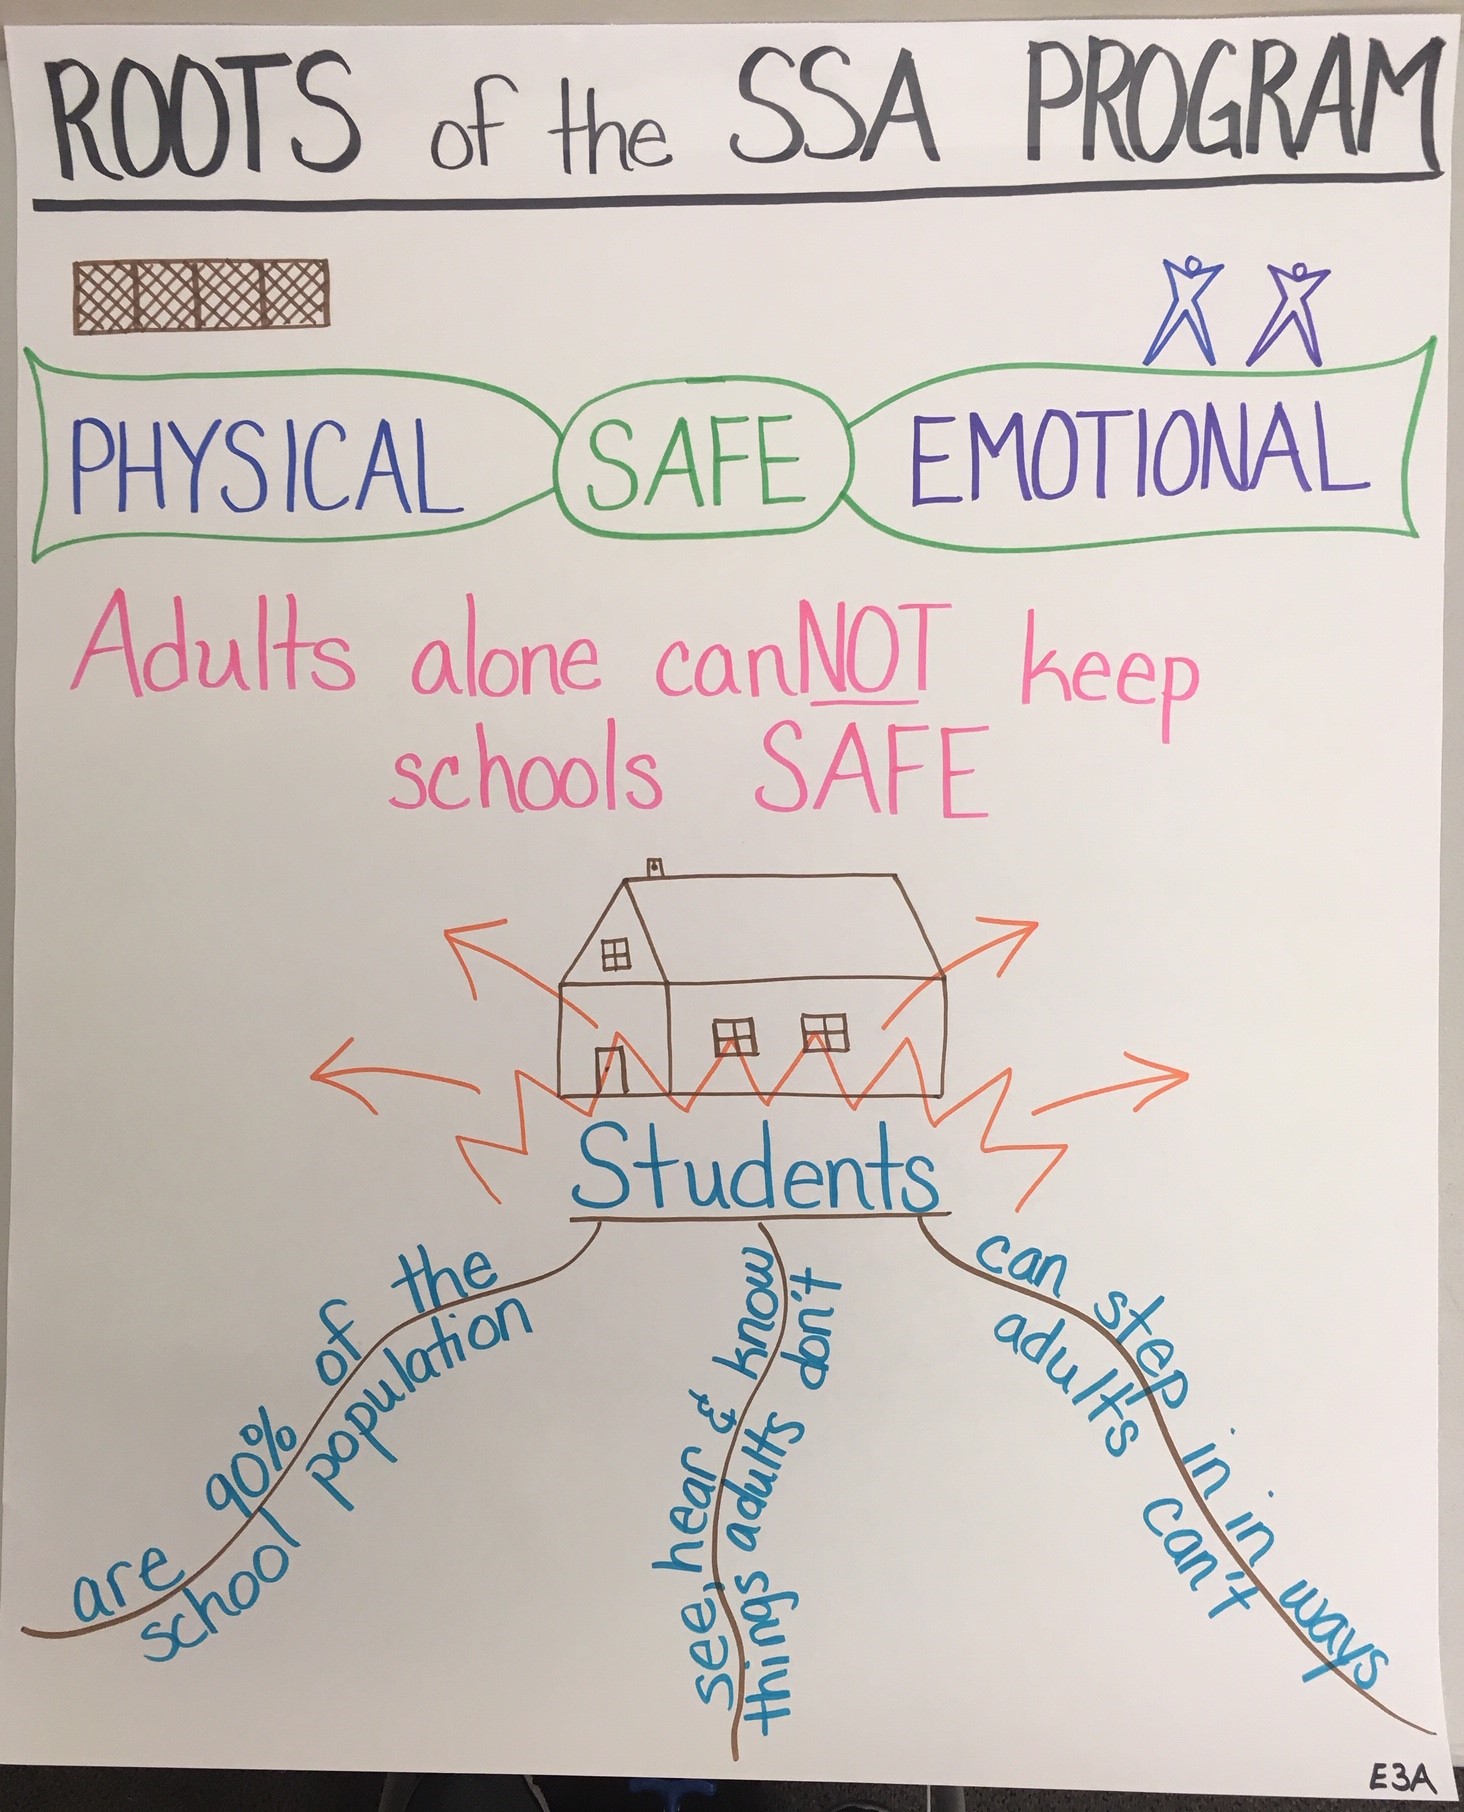 ROOTS of the SSA PROGRAM
PHYSICAL SAFE EMOTIONAL
Adults alone canNOT keep
schools SAFE
Students
are 90% of the
school population
see, hear & know
things adults don't
can step in in ways
adults can't
E3A